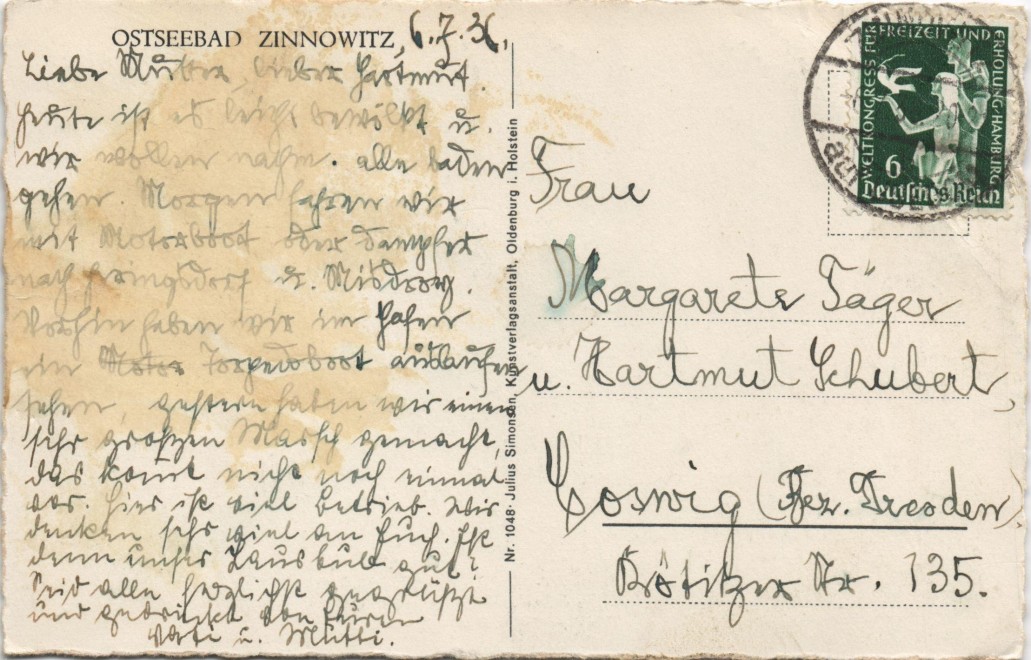 OSTSEEBAD ZINNOWITZ, 6.7.36.
Liebe Mutter, lieber Hartmut.
Heute ist es leicht bewölkt u.
wir wollen nachm. alle baden
gehen. Morgen fahren wir
mit Motorboot oder Dampfer
nach Heringsdorf u. Misdroy.
Vorhin haben wir im Hafen
ein Motor Torpedoboot auslaufen
sehen, gestern haben wir einen
sehr großen Marsch gemacht,
das kommt nicht noch einmal
vor. Hier ist viel Betrieb. Wir
denken sehr viel an Euch. Ist
denn unser Lausbub gut?
Seid alle herzlichst gegrüßt
und gedrückt von Euren
Vati u. Mutti.
Nr. 1048 · Julius Simonsen, Kunstverlagsanstalt, Oldenburg i. Holstein
WELTKONGRESS FÜR FREIZEIT UND ERHOLUNG·HAMBURG
6
Deutsches Reich
Frau
Margarete Jäger
u. Hartmut Schubert,
Coswig (Bez. Dresden)
Kötitzer Str. 135.